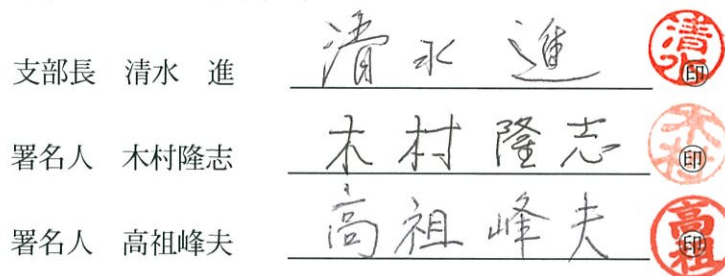 支部長 清水 進 清水 進 清水 ㊞
署名人 木村隆志 木村隆志 木村 ㊞
署名人 高祖峰夫 高祖峰夫 高祖 ㊞